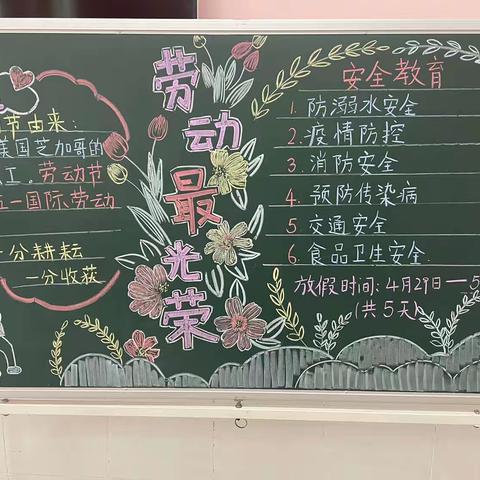 节由来:
美国芝加哥的
工。劳动节
五一国际劳动
一分耕耘
一分收获
劳动最光荣
安全教育
1. 防溺水安全
2. 疫情防控
3. 消防安全
4. 预防传染病
5. 交通安全
6. 食品卫生安全
放假时间: 4月29日—5
(共5天)